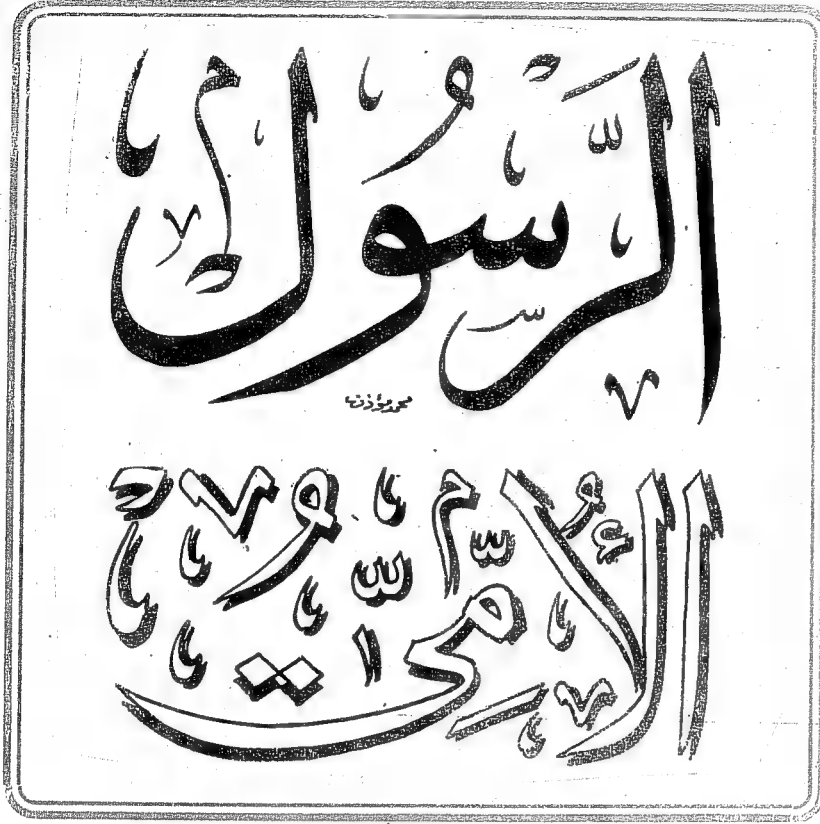 الرَّسُولُ
الأُمِّيُّ